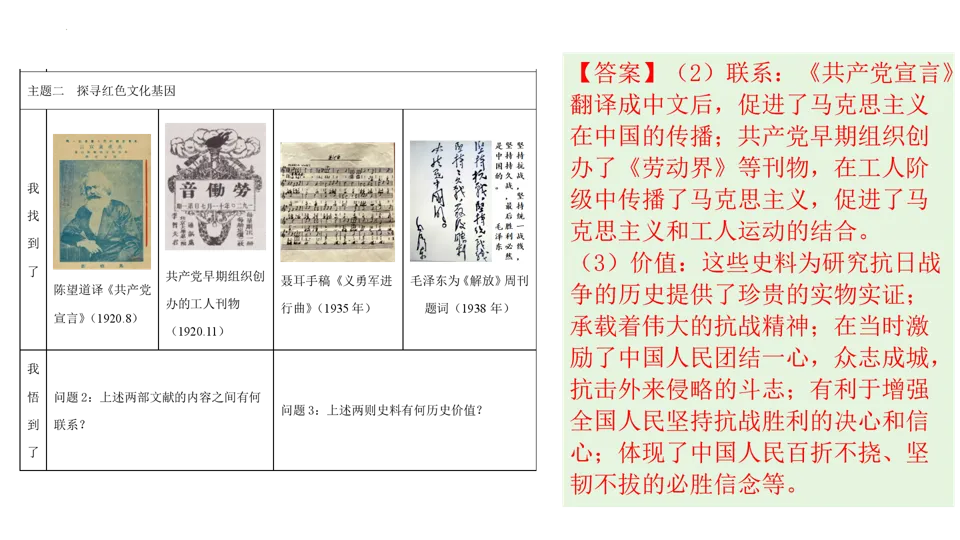 主题二 探寻红色文化基因
我
找
到
了
勞働音
陈望道译《共产党
宣言》（1920.8）
共产党早期组织创
办的工人刊物
（1920.11）
聂耳手稿《义勇军进
行曲》（1935 年）
坚持抗战，坚持统一战线，
坚持持久战，最后胜利必然
是中国的。
毛泽东
毛泽东为《解放》周刊
题词（1938 年）
我
悟
到
了
问题 2：上述两部文献的内容之间有何
联系？
问题 3：上述两则史料有何历史价值？
【答案】（2）联系：《共产党宣言》
翻译成中文后，促进了马克思主义
在中国的传播；共产党早期组织创
办了《劳动界》等刊物，在工人阶
级中传播了马克思主义，促进了马
克思主义和工人运动的结合。
（3）价值：这些史料为研究抗日战
争的历史提供了珍贵的实物实证；
承载着伟大的抗战精神；在当时激
励了中国人民团结一心，众志成城，
抗击外来侵略的斗志；有利于增强
全国人民坚持抗战胜利的决心和信
心；体现了中国人民百折不挠、坚
韧不拔的必胜信念等。